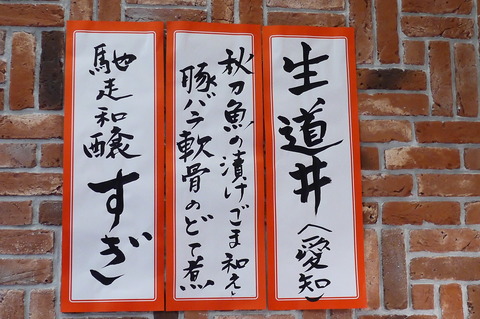 生道井(愛知)
秋刀魚の漬けごま和え
豚バラ軟骨のどて煮
馳走和醸すぎ